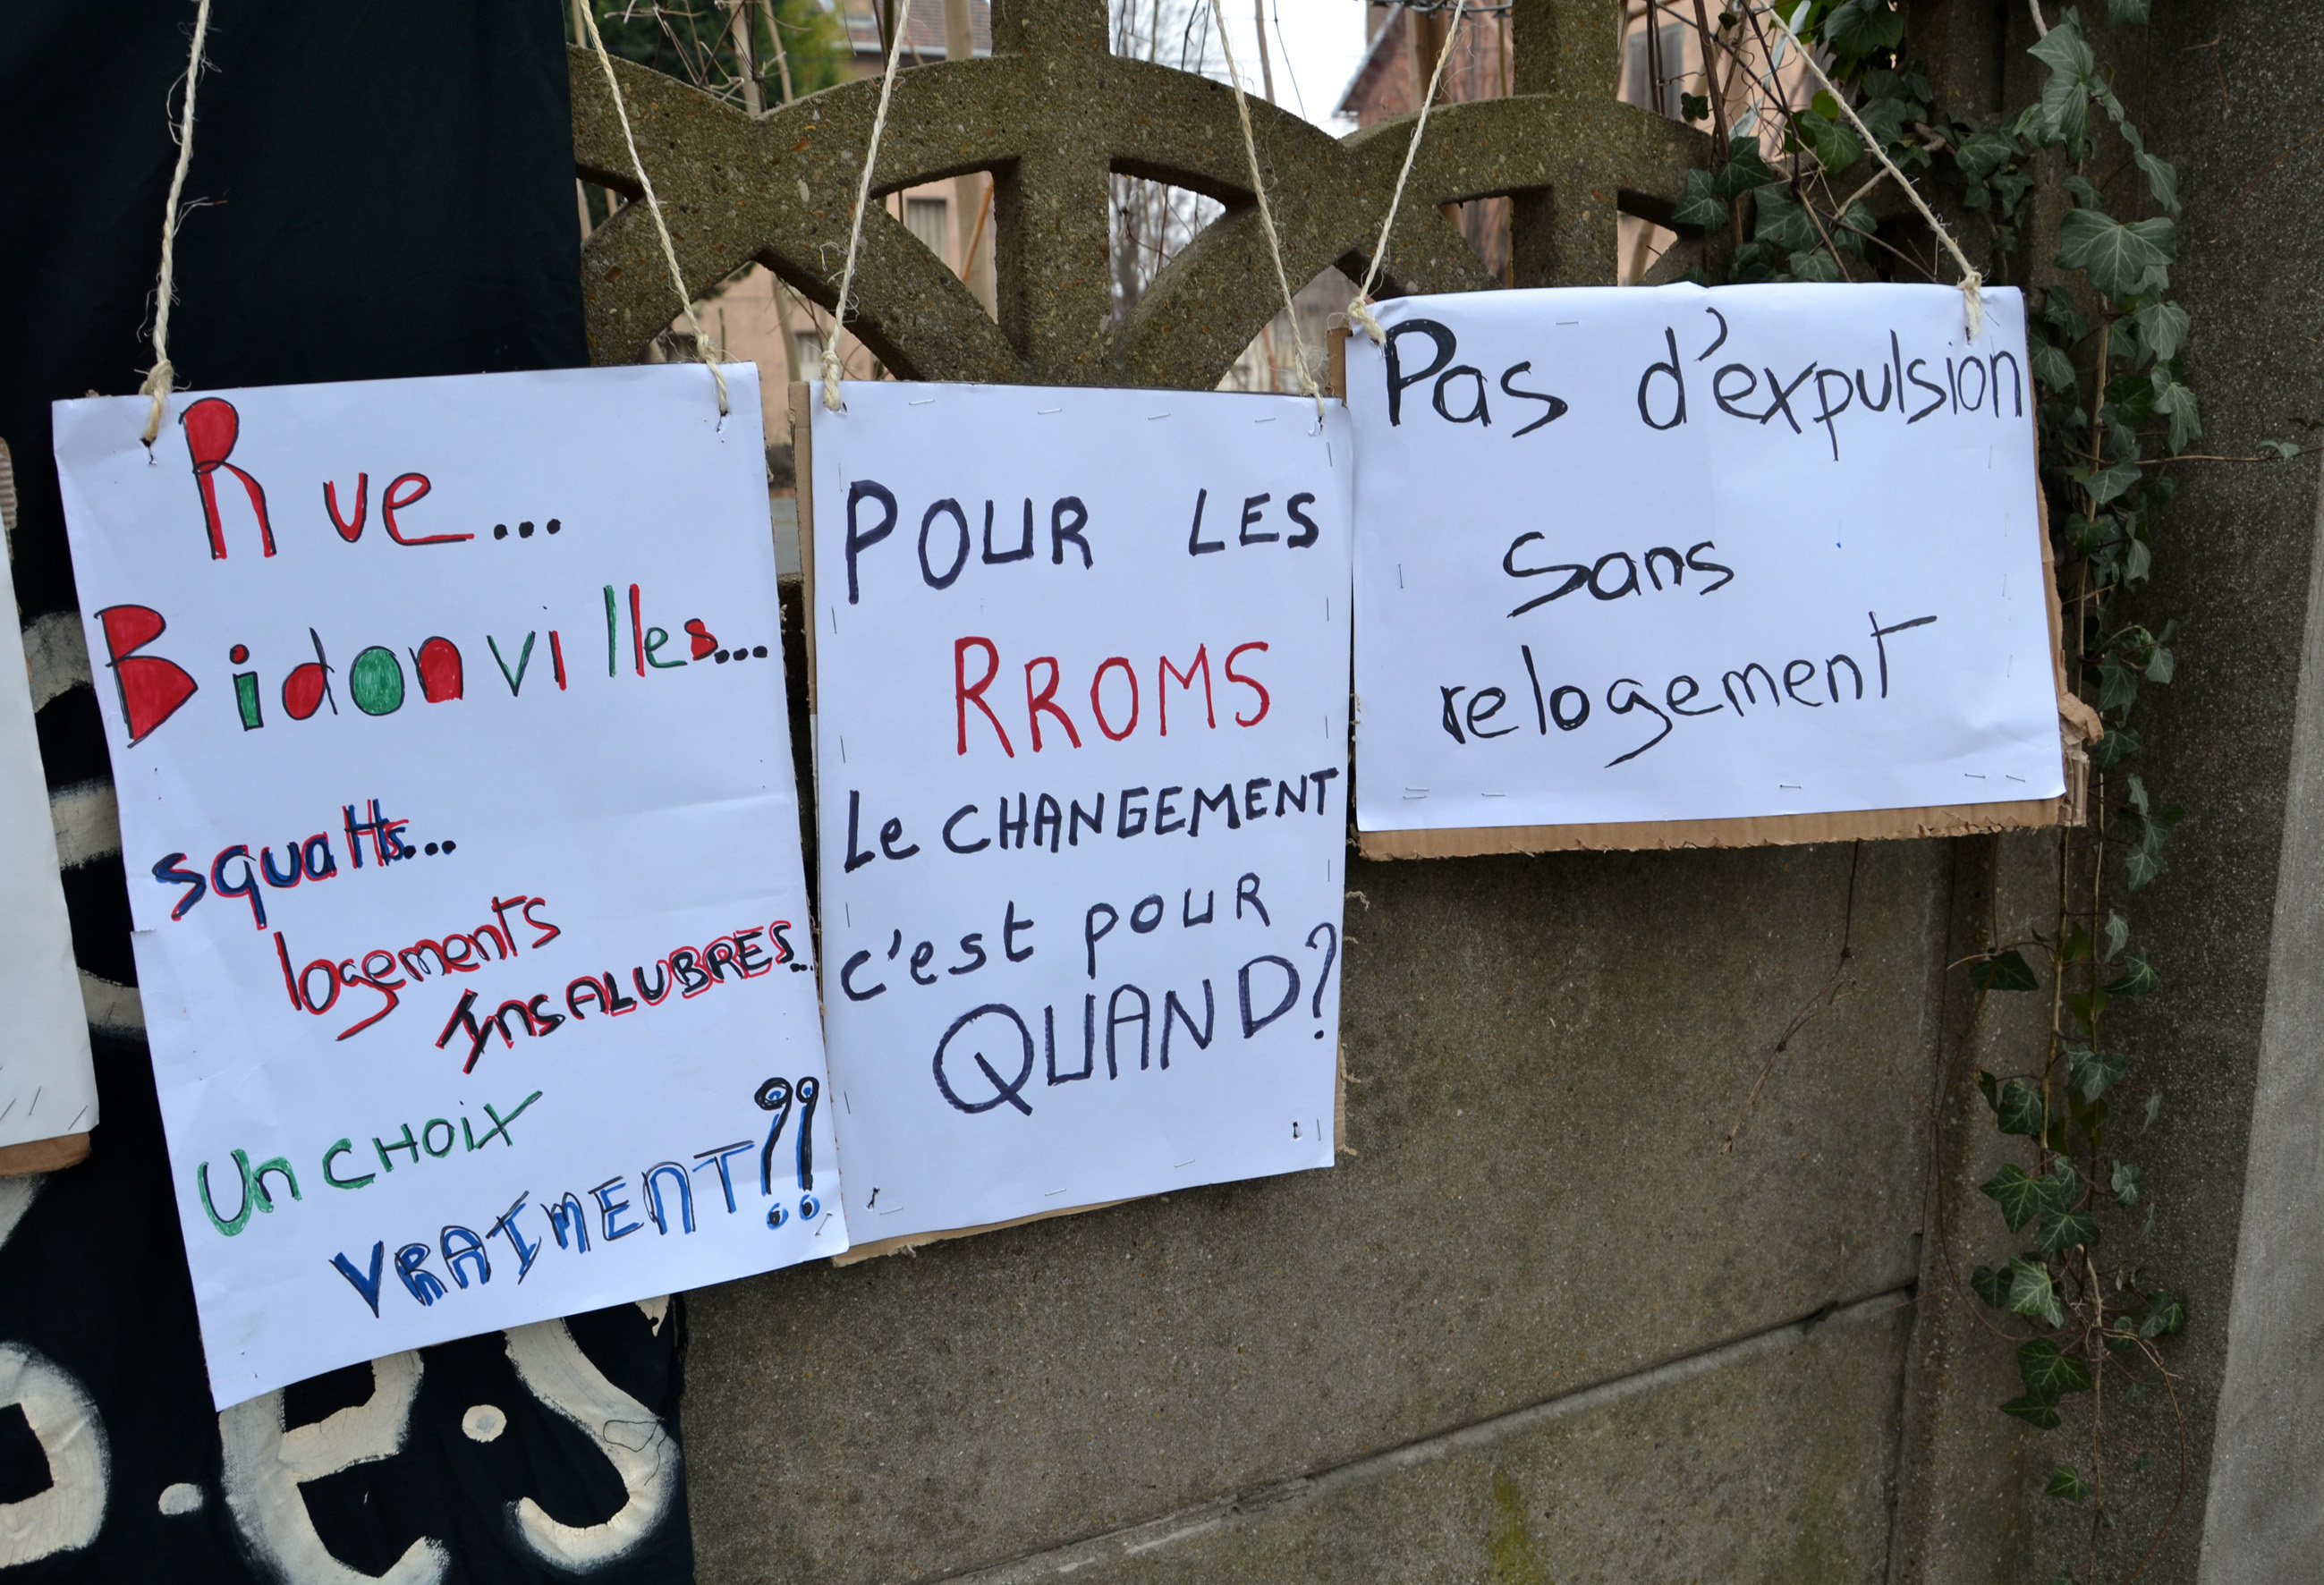 Rue...
Bidonvilles...
squatts...
logements
InsALUBRES...
Un CHOIX
VRAIMENT??
POUR LES
RROMS
Le CHANGEMENT
c'est pour
QUAND?
Pas d'expulsion
Sans
relogement